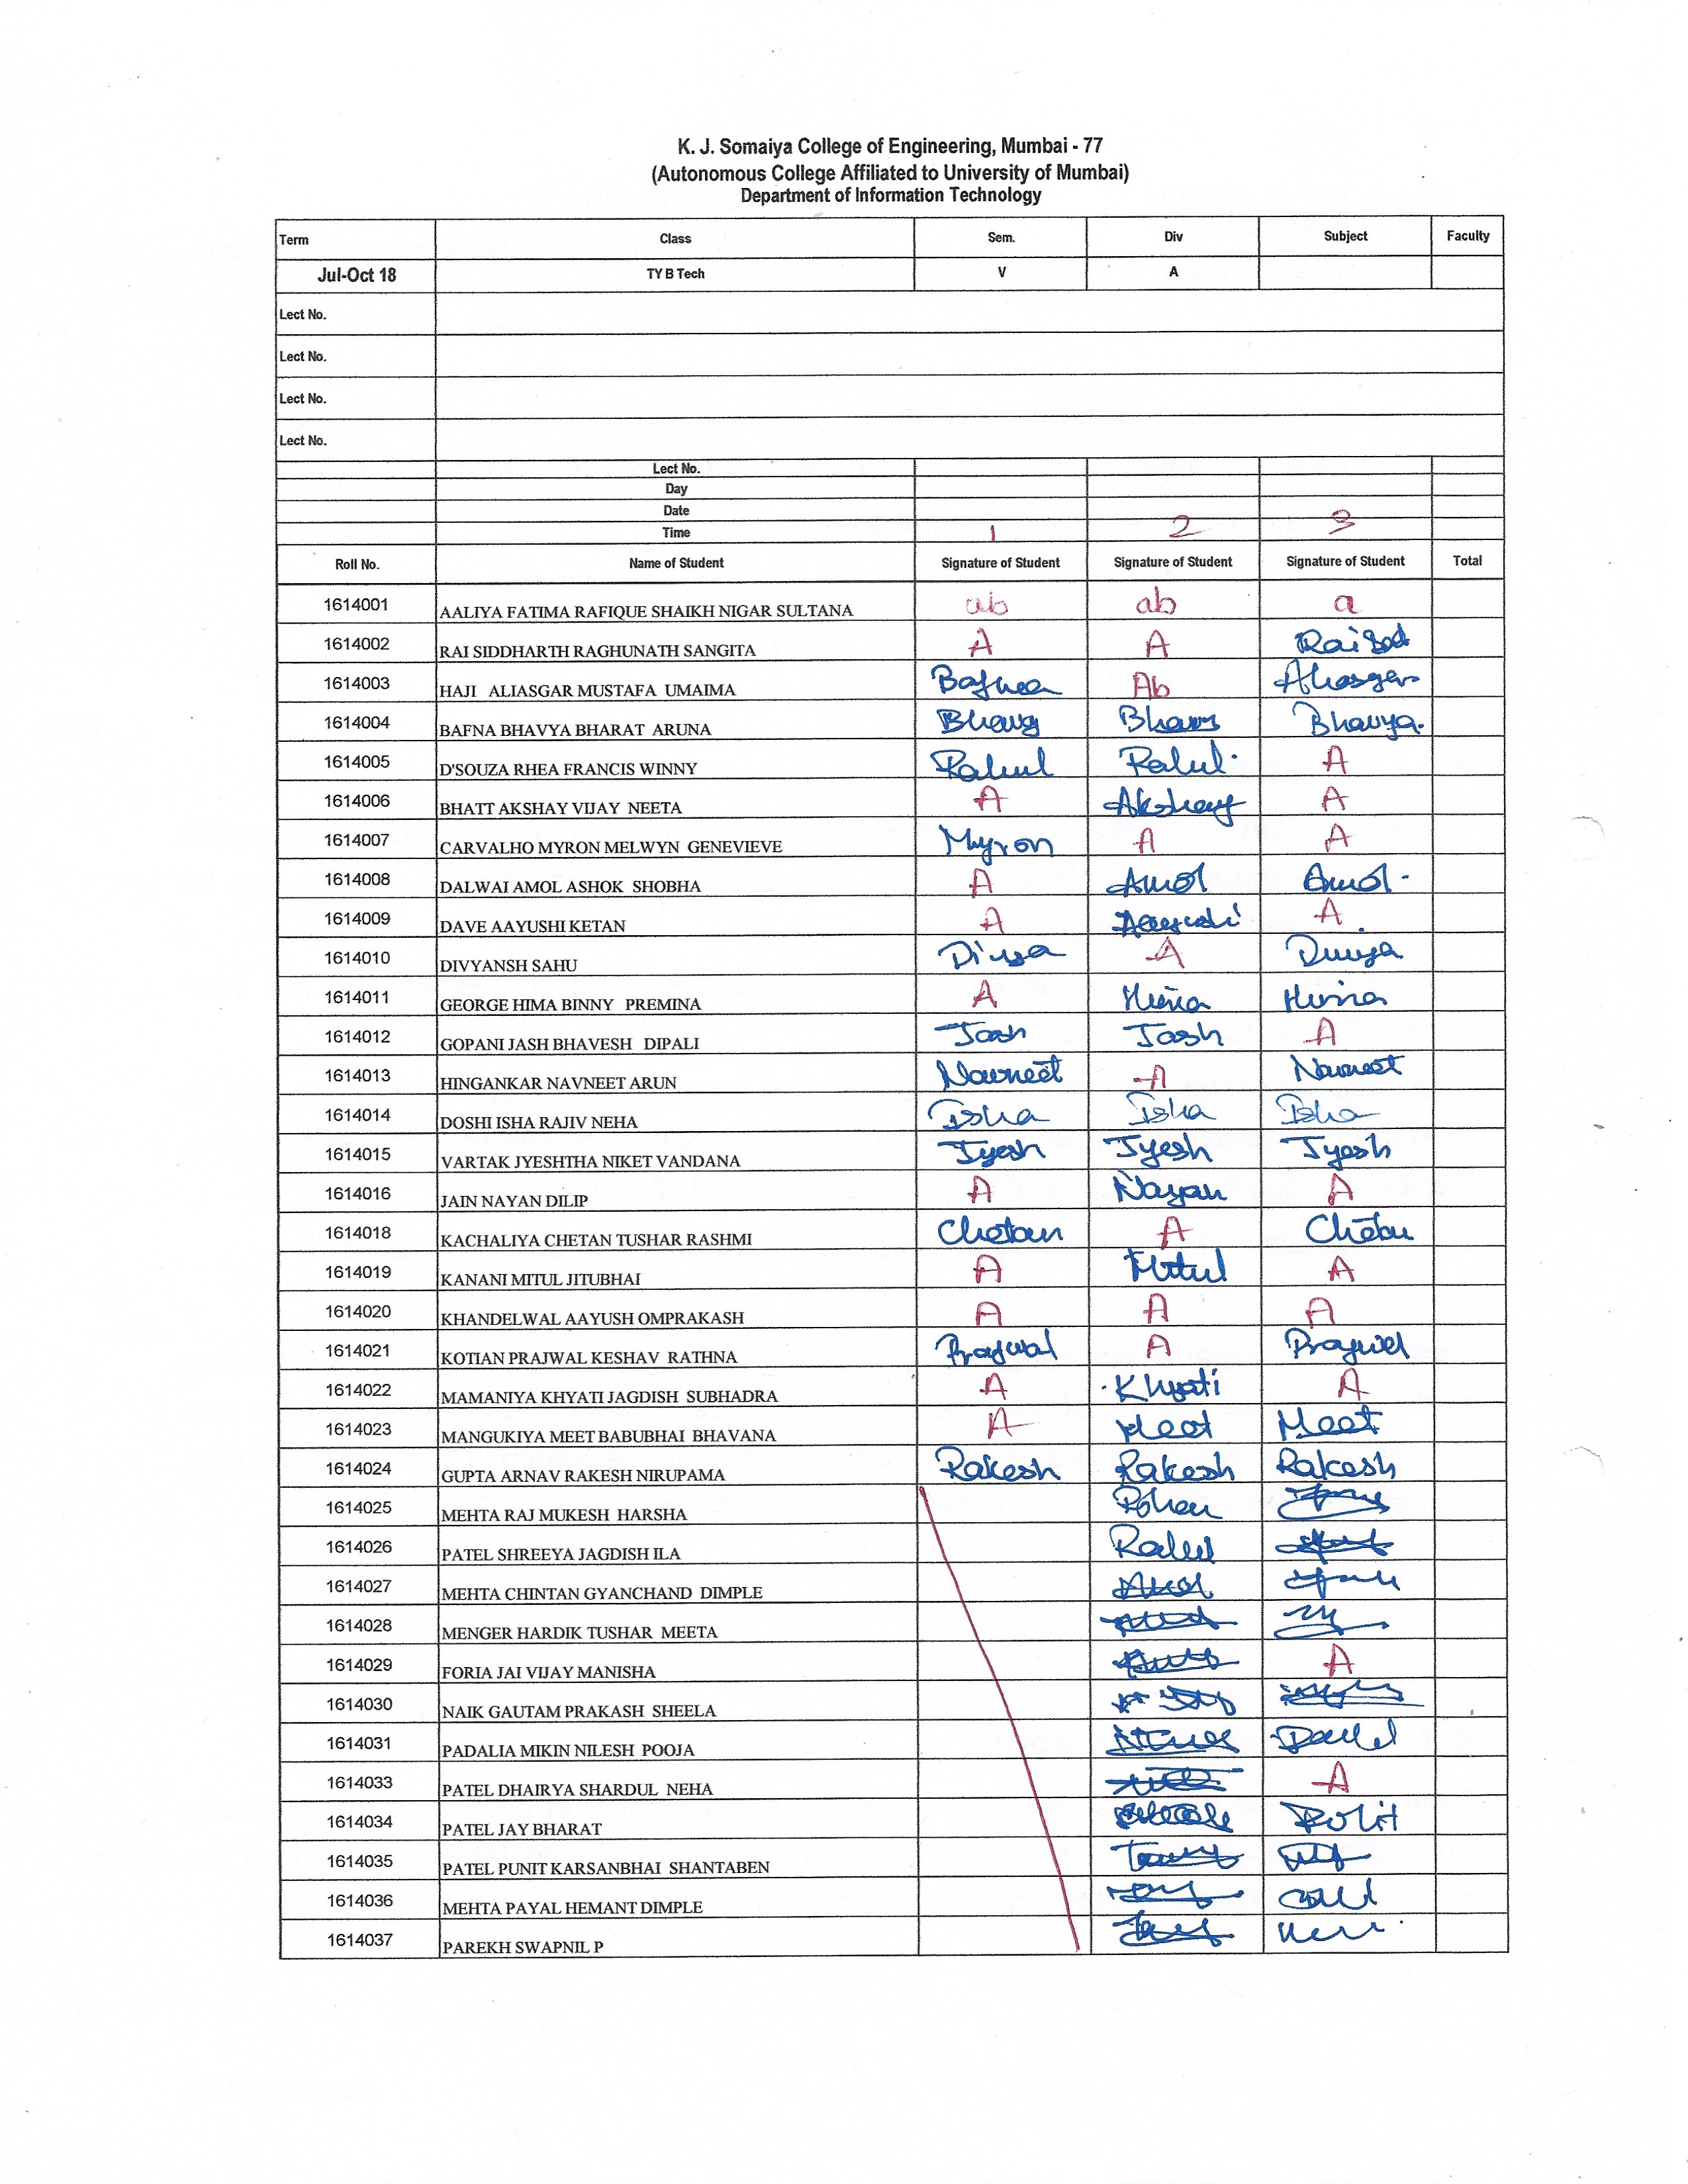 K. J. Somaiya College of Engineering, Mumbai - 77
(Autonomous College Affiliated to University of Mumbai)
Department of Information Technology
Term Class Sem. Div Subject Faculty
Jul-Oct 18 TY B Tech V A
Lect No.
Lect No.
Lect No.
Lect No.
Lect No.
Day
Date
Time 1 2 3
Roll No. Name of Student Signature of Student Signature of Student Signature of Student Total
1614001 AALIYA FATIMA RAFIQUE SHAIKH NIGAR SULTANA ab ab a
1614002 RAI SIDDHARTH RAGHUNATH SANGITA A A
1614003 HAJI ALIASGAR MUSTAFA UMAIMA Bafna Ab Aliasger
1614004 BAFNA BHAVYA BHARAT ARUNA Bhavya.
1614005 D'SOUZA RHEA FRANCIS WINNY Rahul Rahul. A
1614006 BHATT AKSHAY VIJAY NEETA A Akshay A
1614007 CARVALHO MYRON MELWYN GENEVIEVE Myron A A
1614008 DALWAI AMOL ASHOK SHOBHA A Amol Amol.
1614009 DAVE AAYUSHI KETAN A Aayushi A
1614010 DIVYANSH SAHU A
1614011 GEORGE HIMA BINNY PREMINA A Hima Hima
1614012 GOPANI JASH BHAVESH DIPALI Jash Jash A
1614013 HINGANKAR NAVNEET ARUN Navneet A Navneet
1614014 DOSHI ISHA RAJIV NEHA Isha Isha Isha
1614015 VARTAK JYESHTHA NIKET VANDANA Jyesh Jyesh Jyesh
1614016 JAIN NAYAN DILIP A Nayan A
1614018 KACHALIYA CHETAN TUSHAR RASHMI Chetan A Chetan
1614019 KANANI MITUL JITUBHAI A Mitul A
1614020 KHANDELWAL AAYUSH OMPRAKASH A A A
1614021 KOTIAN PRAJWAL KESHAV RATHNA Prajwal A Prajwal
1614022 MAMANIYA KHYATI JAGDISH SUBHADRA A Khyati A
1614023 MANGUKIYA MEET BABUBHAI BHAVANA A Meet Meet
1614024 GUPTA ARNAV RAKESH NIRUPAMA Rakesh Rakesh Rakesh
1614025 MEHTA RAJ MUKESH HARSHA
1614026 PATEL SHREEYA JAGDISH ILA Rahul
1614027 MEHTA CHINTAN GYANCHAND DIMPLE
1614028 MENGER HARDIK TUSHAR MEETA
1614029 FORIA JAI VIJAY MANISHA A
1614030 NAIK GAUTAM PRAKASH SHEELA
1614031 PADALIA MIKIN NILESH POOJA
1614033 PATEL DHAIRYA SHARDUL NEHA A
1614034 PATEL JAY BHARAT
1614035 PATEL PUNIT KARSANBHAI SHANTABEN
1614036 MEHTA PAYAL HEMANT DIMPLE
1614037 PAREKH SWAPNIL P